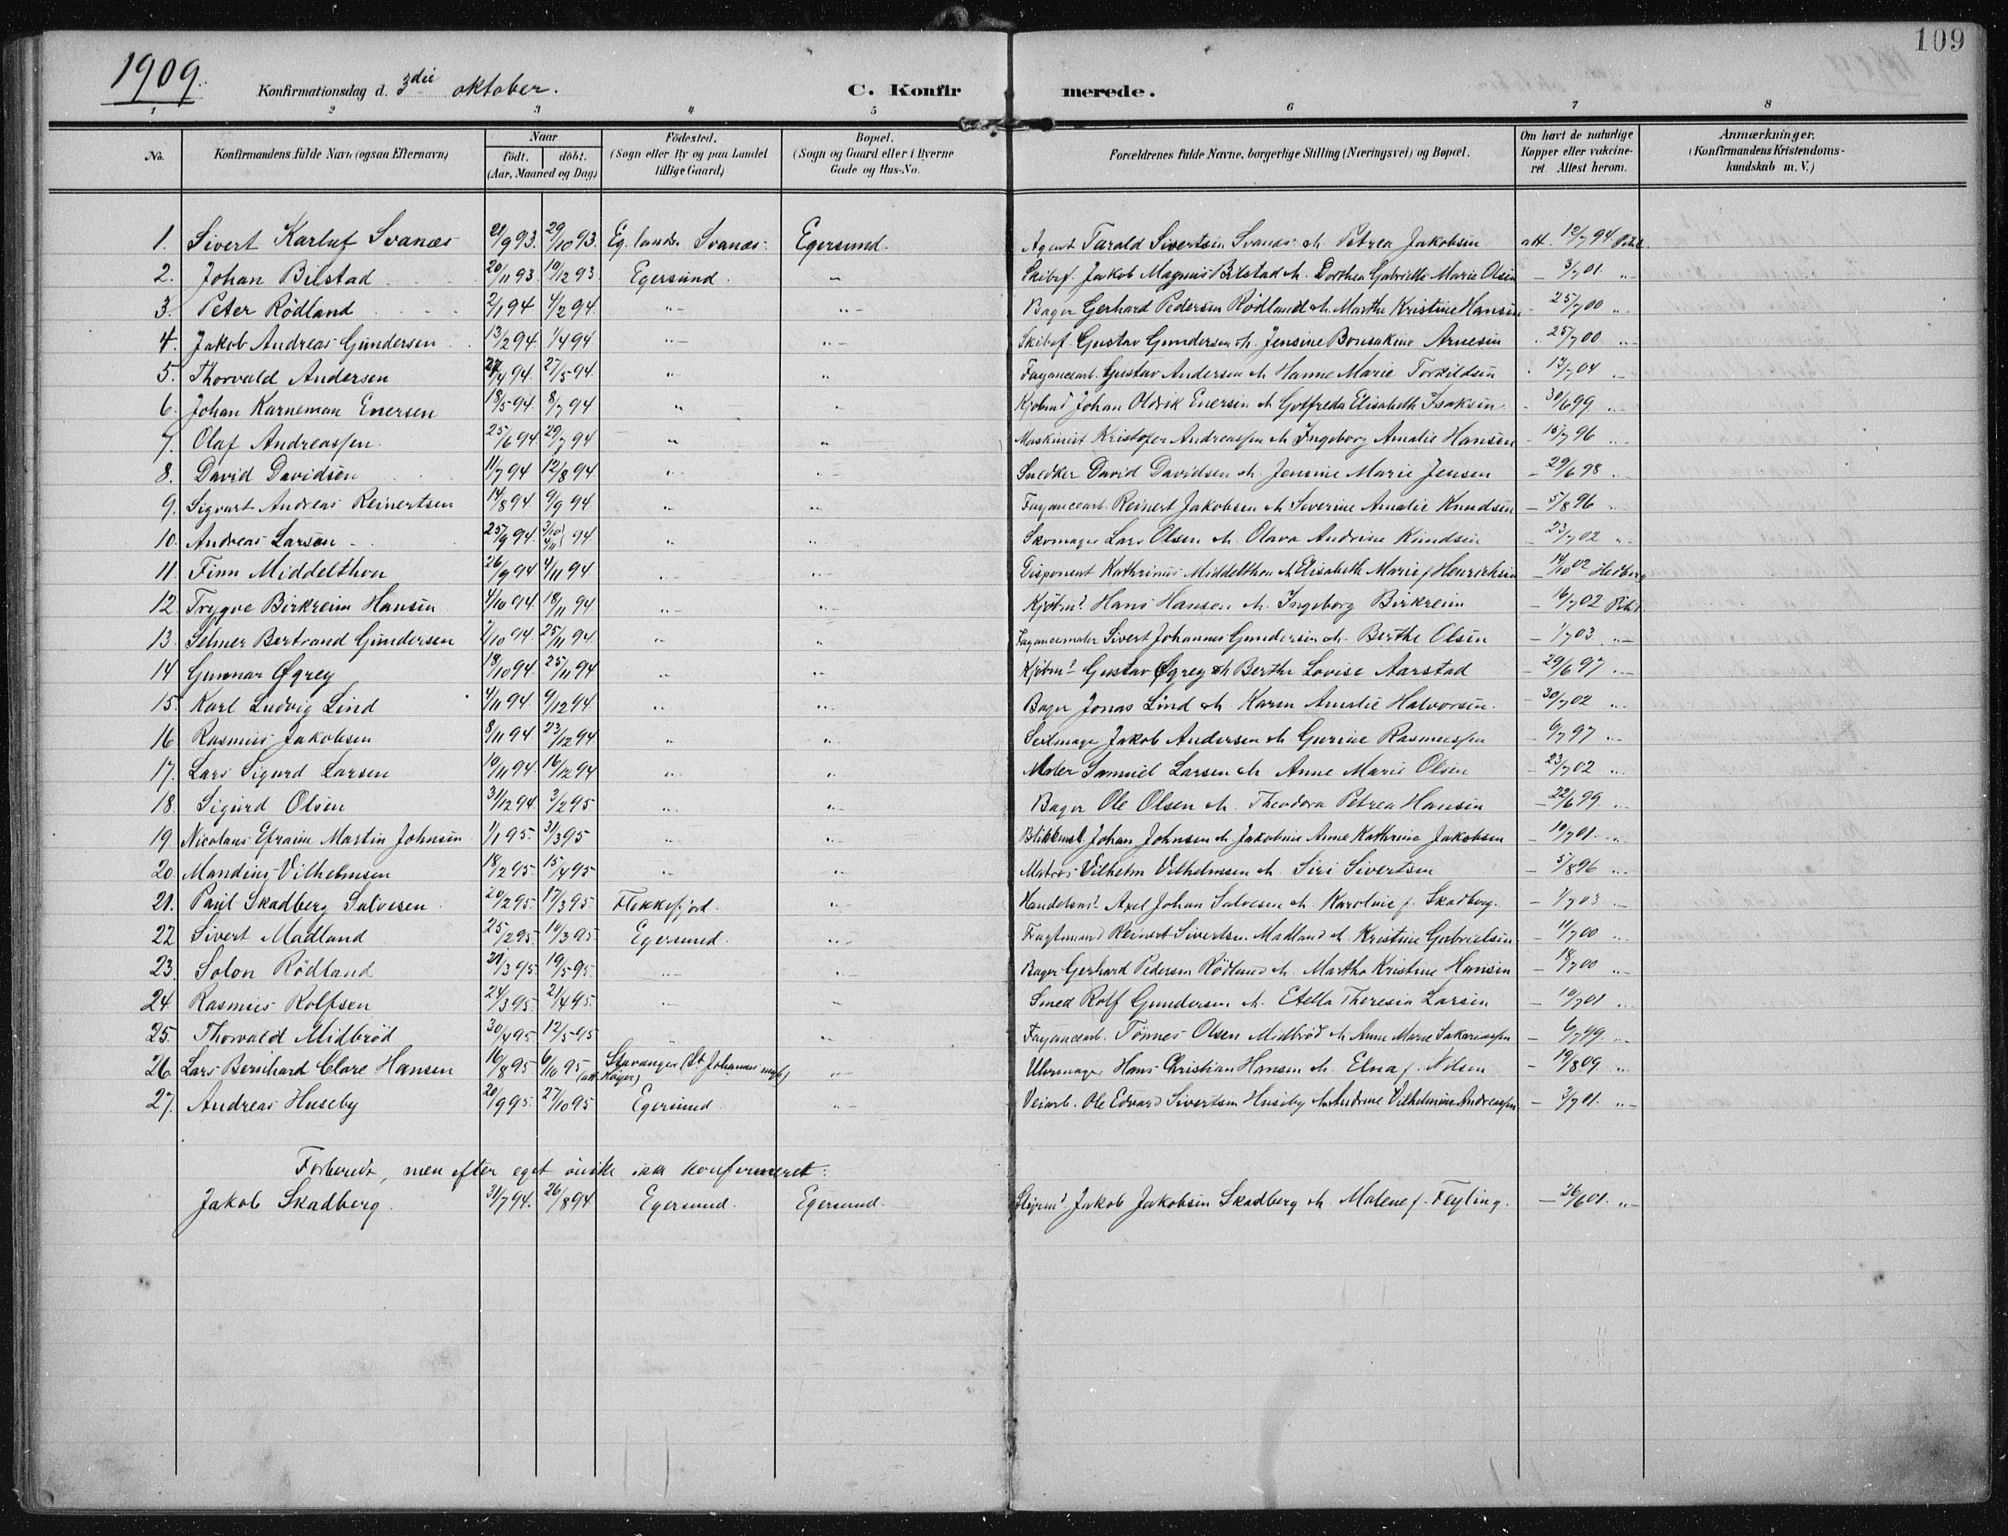 109
1909.
Konfirmationsdag d. 3die oktober. C. Konfirmerede.
1 2 3 4 5 6 7 8
No. Konfirmandens fulde Navn (ogsaa Efternavn) Naar født. døbt. (Aar, Maaned og Dag) Födested. (Sogn eller By og paa Landet tillige Gaard) Bopæl. (Sogn og Gaard eller i Byerne Gade og Hus-No. Forældrenes fulde Navne, borgerlige Stilling (Næringsvei) og Bopæl. Om havt de naturlige Kopper eller vaccineret. Attest herom. Anmærkninger. (Konfirmandens Kristendomskundskab m. V.)
1. Sivert Karluf Svanæs 21/9 93. 29/10 93. Eg. lands. Svanæs. Egersund. Agent Tarald Sivertsen Svanæs & Petrea Jakobsen att. 12/7 94
2. Johan Bilstad 20/11 93 10/12 93 Egersund. — Skibsf. Jakob Magnus Bilstad & Dorthea Gabrielle Marie Olsen — 3/7 01. "
3. Peter Rødland 2/1 94 4/2 94. " " Bager Gerhard Pedersen Rødland & Marthe Kristine Hansen - 25/7 00 "
4. Jakob Andreas Gundersen 13/2 94. 1/4 94 " " Skibsf. Gustav Gundersen & Jensine Arnesen 25/7 00 "
5. Thorvald Andersen 27/5 94 " " Fayancearb. Gustav Andersen & Hanne Marie Torkildsen 04 "
6. Johan Karneman Enersen 18/5 94. 8/7 94 " " Kjøbmd Johan Enersen & Gotfreda Elisabeth Isaksen 30/6 99 "
7. Olaf Andreassen. 25/6 94 29/7 94 " " Maskinist Kristofer Andreassen & Ingeborg Amalie Hansen 96 "
8. David Davidsen 11/7 94 12/8 94 " " Snedker David Davidsen & Jensine Marie Jensen — 29/6 98 "
9. Sigvart Andreas Reinertsen 14/8 94. 9/9 94 " " Fayancearb. Reinert Jakobsen & Severine Amalie Knudsen — 5/8 96 "
10. Andreas Larsen 25/9 94 94 " " Skomager Lars Olsen & Olava Andrine Knudsen — 23/7 02 "
11. Finn Middelthon 26/9 94 4/11 94 " " Disponent Kathrinus Middelthon & Elisabeth Marie f. Henrichsen — 14/10 02 Hedberg
12. Trygve Birkreim Hansen 4/10 94. 18/11 94 " " Kjøbmd Hans Hansen & Ingeborg Birkreim — 16/7 02
13. Selmer Bertrand Gundersen 7/10 94. 25/11 94 " " Fayancemaler Sivert Johannes Gundersen & Berthe Olsen — 1/7 03. "
14. Gunnar Øgrey 18/10 94. 25/11 94 " " Kjøbmd Gustav Øgrey & Berthe Lovise Aarstad — 29/6 97 "
15. Karl Ludvig Lind 4/11 94 9/12 94 " " Bager Jonas Lind & Karen Amalie Halvorsen. — 30/7 02 "
16 Rasmus Jakobsen 8/11 94 23/12 94 " " Seilmager Jakob Andersen & Gurine Rasmussen — 6/7 97 "
17. Lars Sigurd Larsen 10/11 94 16/12 94 " " Maler Samuel Larsen & Anne Marie Olsen — 23/7 02 "
18 Sigurd Olsen 31/12 94. 3/2 95 " " Bager Ole Olsen & Theodora Petrea Hansen — 22/6 99. "
19 Nicolaus Efraim Martin Johnsen 1/1 95. 31/3 95 " " Blikkensl. Johan Johnsen & Jakobine Anne Kathrine Jakobsen — 10/7 01. "
20. Mandius Vilhelmsen 18/2 95. 15/4 95 " " Matros Vilhelm Vilhelmsen & Siri Sivertsen — 5/8 96 "
21. Paul Skadberg Salvesen 20/2 95. 17/3 95. Flekkefjord. " Handelsmd Axel Johan Salvesen & Karoline f. Skadberg. — 1/7 03 "
22. Sivert Madland 25/2 95. 10/3 95 Egersund. " Fragtmand Reinert Sivertsen Madland & Kristine Gabrielsen. — 11/7 00 "
23. Solon Rødland 21/3 95. 19/5 95. " " Bager Gerhard Pedersen Rødland & Martha Kristine Hansen — 18/7 00 "
24. Rasmus Rolfsen 24/3 95. 21/4 95. " " Smed Rolf Gundersen & Etella Theresia Larsen — 10/7 01 "
25. Thorvald Midbrød 30/4 95. 12/5 95 " " Fayancearb. Tønnes Olsen Midbrød & Anne Marie Sakariassen — 6/7 99. "
26. Lars Bernhard Clare Hansen 16/8 95. 6/10 95 Stavanger (St. Johannes mgh) " Uhrmager Hans Christian Hansen & Elna f. Nilsen — 19/8 09 "
27. Andreas Huseby 20/9 95. 27/10 95 Egersund. " Veiarb. Ole Edvard Sivertsen Huseby & Andrine Vilhelmine Andreassen — 3/7 01. "
Forberedt, men efter eget ønske ikke konfirmeret:
Jakob Skadberg. 31/7 94. 26/8 94 Egersund. Egersund. Styrmd Jakob Jakobsen Skadberg & Malene f. Feyling. — 26/6 01. "